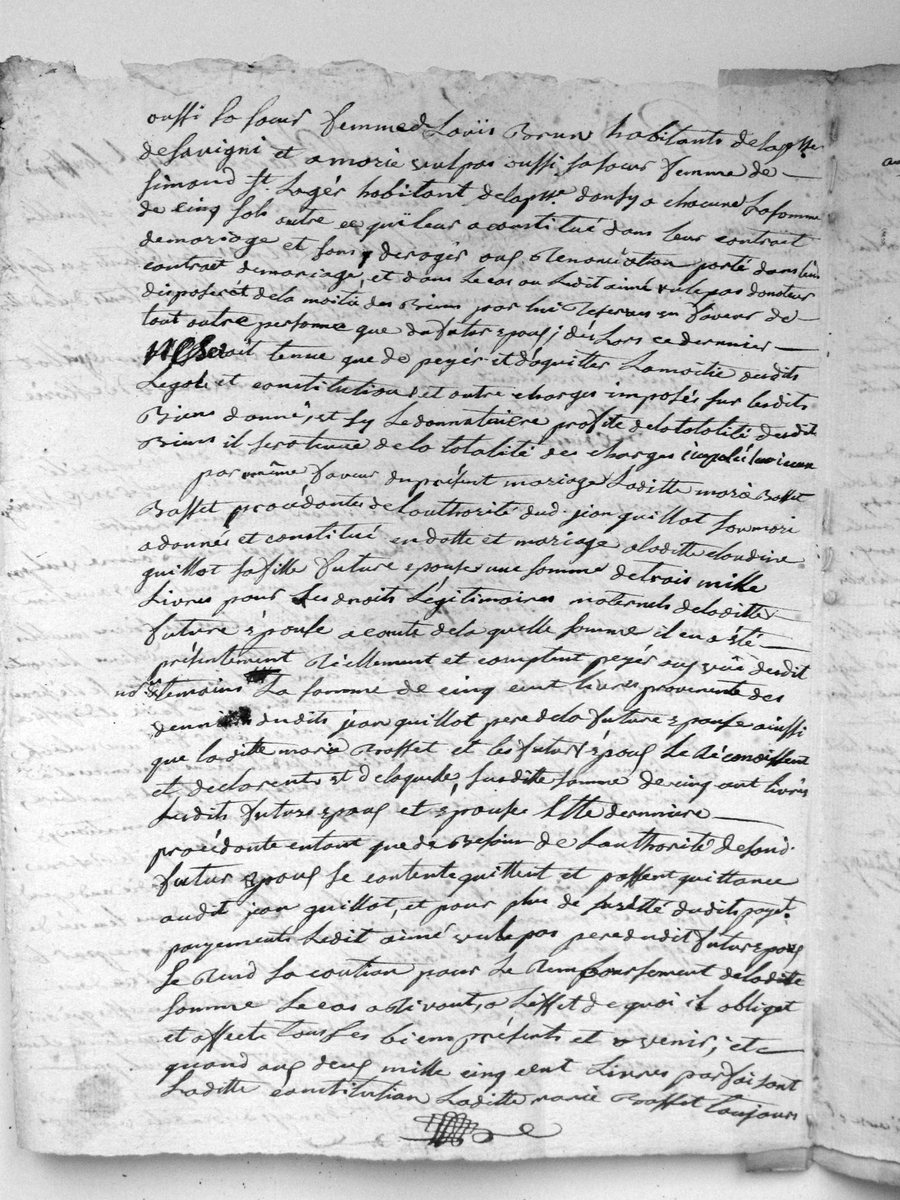 aussi sa sœur femme d Louis Brun habitants de la psse
de Savigni et a marie vulpas aussi sa sœur femme de
Simand St. Lagér habitant de la psse. dansy a chacune la somme
de cinq sols outre ce qui leur a constitué dans leur contract
de mariage et sans y deroger aux Renonciation porté dans leur
contract de mariage, et dans le cas ou Ledit aimé vulpas donateur
disposerét de la moitié des Biens par lui Reservés en faveur de
tout autre personne que du futur epoux, dés Lors ce dernier
ne seroit tenue que de peyér et d'aquitter La moitié desdits
Legats et constitutions et autre charges imposés sur lesdits
Biens donné, et sy Le donnataire profite de la totalité desdit
Biens il sera tenue de la totalité des charges
par même faveur du présent mariage Laditte marie Basset
Basset procédante de l'authorité dud. jean guillot son mari
a donnés et constitué en dotte et mariage a laditte claudine
guillot sa fille future epouse une somme de trois mille
Livres pour ses droits Légitimaires maternels de laditte
future épouse a compte de la quelle somme il en a été
présentement Réellement et comptent peyér aux vüe desdit
no. et temoins La somme de cinq cent livres provenente des
denniers dudits jean guillot pere de la future epouse ainssi
que laditte marie Basset et les futurs époux Le Réconoissent
et declarents et de laquelle susditte somme de cinq cent livres
Lesdits futurs epoux et epouse Cette derniere
procédante entant que de Besoin de L'authorité de sond.
futur epoux se contente quittent et passent quittance
audit jean guillot, et pour plus de surétté dudits payet.
payements Ledit aimé vulpas pere dudit futur epoux
se Rend sa caution pour Le Remboursement de ladite
somme Le cas arrivant, a L'effet de quoi il obliget
et affecte tous ses biens présents et a venir; et
quand aux deux mille cinq cent Livres parfaisant
Laditte constitution Laditte marie Basset toujours